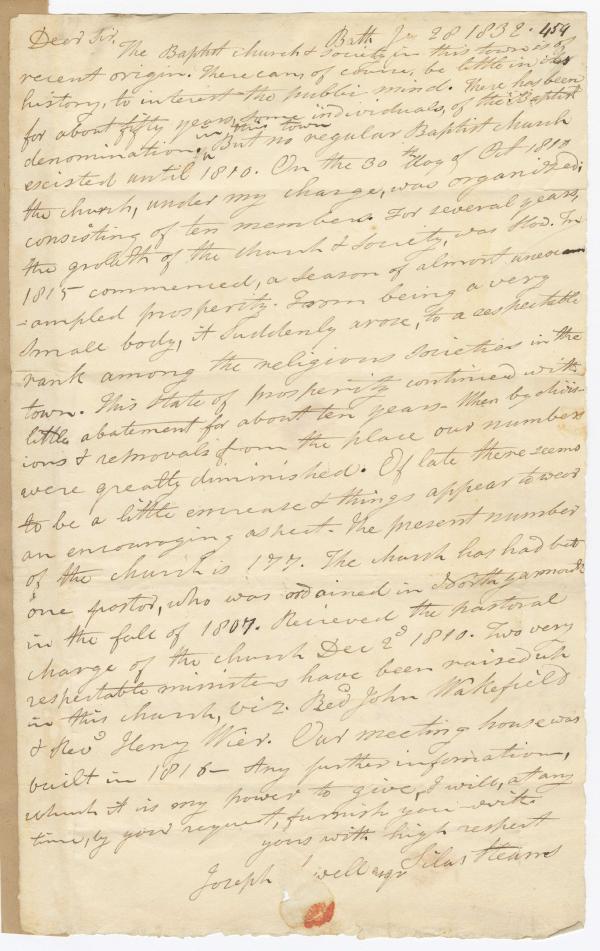 Bath Ja 28 1832. 454
Dear Sir.
The Baptist church & Society in this town is of
recent origin. There can, of course, be little in its
history, to interest the public mind. There has been
for about fifty years, some individuals, of the Baptist
denomination, in this town But no regular Baptist church
excisted until 1810. On the 30th day of Oct 1810
the church, under my charge, was organized,
consisting of ten members. For several years,
the growth of the church & society, was slow. In
1815 commenced, a season of almost unex-
-ampled prosperity. From being a very
small body, it suddenly arose, to a respectable
rank among the religious societies in the
town. This state of prosperity continued with
little abatement for about ten years - When by divis-
ions & removals from the place our numbers
were greatly diminished. Of late there seems
to be a little encrease & things appear to wear
an encouraging aspect. The present number
of the church is 177. The church has had but
one pastor, who was ordained in North yarmouth
in the fall of 1807. Recieved the pastoral
charge of the church Dec 2d 1810. Two very
respectable ministers have been raised up
in this church, viz. Revd John Wakefield
& Revd Henry Wier. Our meeting house was
built in 1816 - Any further information,
which it is my power to give, I will, at any
time, by your request, furnish you with
yours with high respect
Silas Stearns
Joseph well esqr